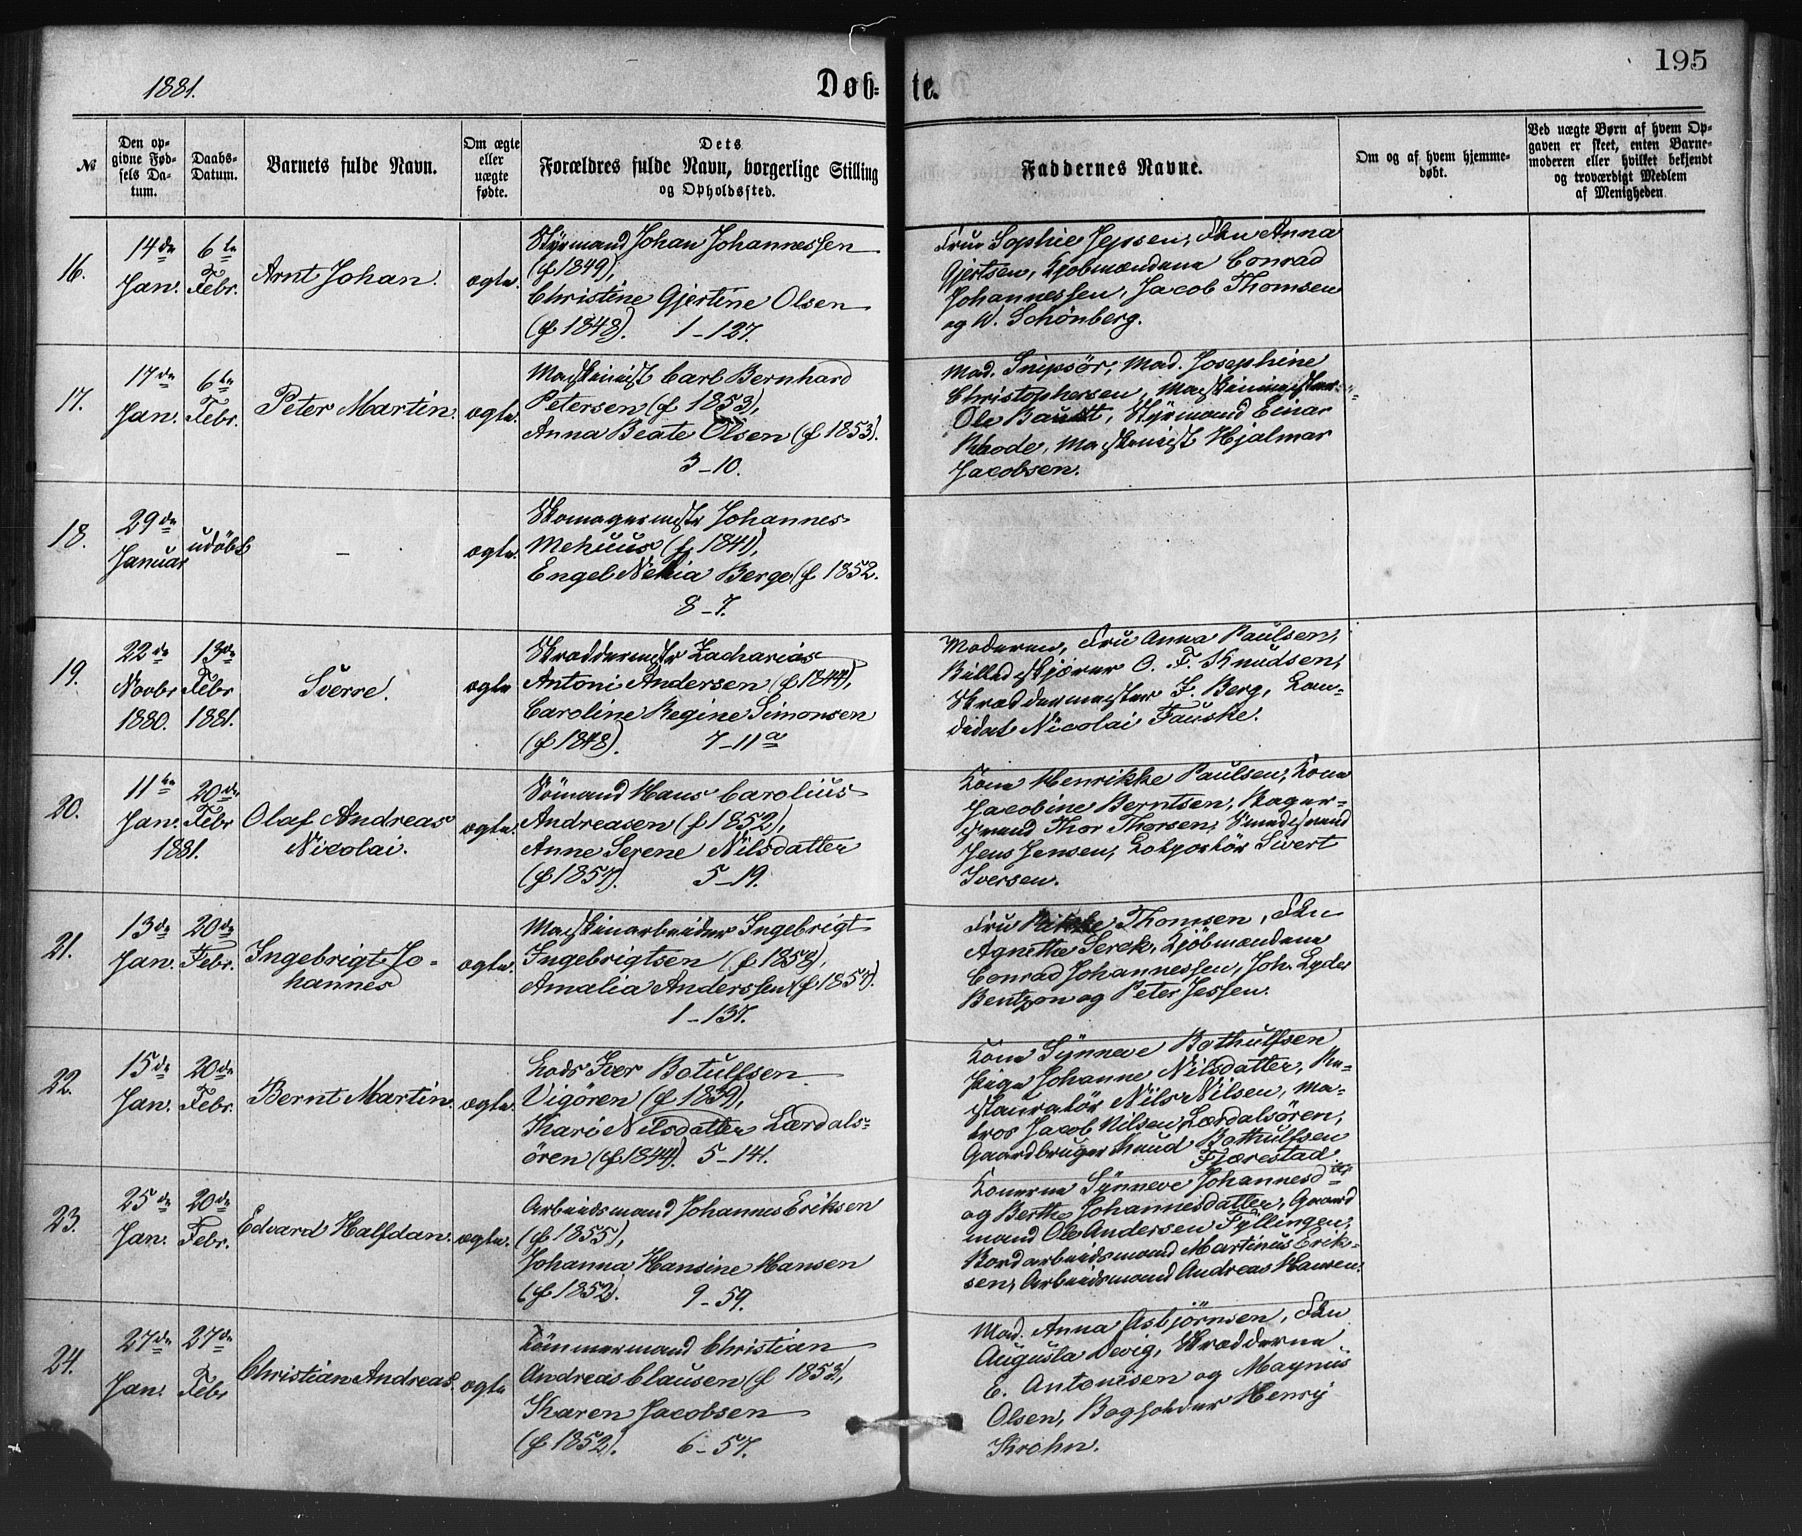 195
1881.
Døb-te.
№
Den op-
givne Fød-
sels Da-
tum.
Daabs-
Datum.
Barnets fulde Navn.
Om ægte
eller
uægte
fødte.
Dets
Forældres fulde Navn, borgerlige Stilling
og Opholdssted.
Faddernes Navne.
Om og af hvem hjemme-
døbt.
Ved uægte Børn af hvem Op-
gaven er skeet, enten Barne-
moderen eller hvilket bekjendt
og troværdigt Medlem
af Menigheden
16.
14de
Jan.
6te
Febr.
Arnt Johan.
ægte.
Styrmand Johan Johannessen
(f 1849),
Christine Gjertine Olsen
(f 1848). 1-127.
Frue Sophie Jepsen, Fkn Anna
Gjertsen, Kjobmændene Conrad
Johannessen, Jacob Thomsen
og W. Schönberg.
17.
17de
Jan.
6te
Febr.
Peter Martin.
ægte.
Maskinist Carl Bernhard
Petersen (f 1853),
Anna Beate Olsen (f 1853).
3-10.
Mad. Snipsör, Mad. Josephine
Christophersen, Maskinmester
Ole Baust, Styrmand Einar
Rhode, Maskinist Hjalmar
Jacobsen.
18.
29de
Januar
udöbt
-
ægte.
Skomagermestr Johannes
Mehuus (f 1841),
Engel Nekia Berge (f 1852.
8-7.
19.
22de
Novbr
1880.
13de
Febr
1881.
Sverre.
ægte
Skræddermestr Zacharias
Antoni Andersen (f 1844),
Caroline Regine Simonsen
(f 1848). 7-11a
Moderen, Fru Anna Paulsen,
Billedskjærer O. F. Knudsen,
Skræddermester F. Berg, Kan-
didat Nicolai Fauske.
20.
11te
Jan.
1881.
20de
Febr
Olaf Andreas
Nicolai.
ægte.
Sömand Hans Carolius
Andreasen (f 1852),
Anne Serene Nilsdatter
(f 1857). 5-19.
Kone Henrikke Paulsen, Kone
Jacobine Berntsen, Bager-
svend Thor Thorsen, Smedsvend
Jens Jensen, Kolportör Sivert
Iversen.
21.
13de
Jan.
20de
Febr.
Ingebrigt Jo-
hannes
ægte.
Maskinarbeider Ingebrigt
Ingebrigtsen (f 1858),
Amalia Anderssen (f 1857).
1-137.
Fru Rikke Thomsen, Fkn
Agnethe Serck, Kjöbmændene
Conrad Johannessen, Joh. Lyder
Bentzon og Peter Jessen.
22.
15de
Jan.
20de
Febr.
Bernt Martin.
ægte.
Lods Iver Botulfsen
Vigören (f 1839),
Kari Nilsdatter Lærdals-
ören (f 1844). 5-141.
Kone Synneve Bothulfsen
Pige Johanne Nilsdatter, Re-
stauratör Nils Nilsen, Ma-
tros Jacob Nilsen Lærdalsören,
Gaardbruger Knud Bothulfsen
Fjærestad
23.
25de
Jan.
20de
Febr.
Edvard Halfdan.
ægte.
Arbeidsmand Johannes Eriksen
(f 1855),
Johanna Hansine Hansen
(f 1852). 9-59.
Konerne Synneve Johannesdter
og Berthe Johannesdatter, Gaard
mand Ole Andersen Fyllingen,
Bordarbeidsmand Martinus Erik-
sen, Arbeidsmand Andreas Hansen.
24.
27de
Jan.
27de
Febr
Christian Andreas.
ægte
Tömmermand Christian
Andreas Clausen (f 1853),
Karen Jacobsen
(f 1852). 6-57.
Mad. Anna Asbjörnsen, Fkn
Augusta Devig, Skrædderne
E. Antonisen og Magnus
Olsen, Bogholder Henry
Krohn.